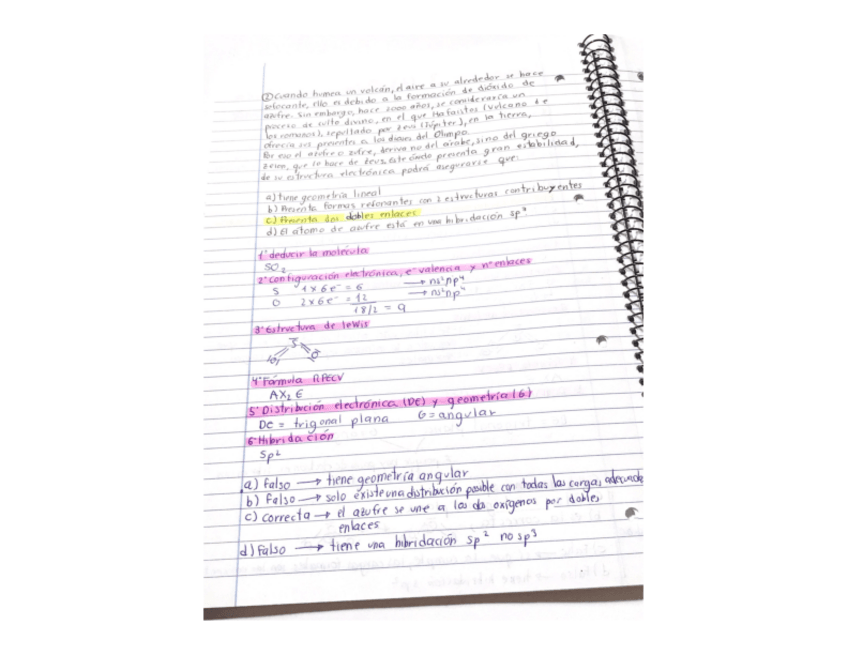 ② Cuando humea un volcán, el aire a su alrededor se hace
sofocante, ello es debido a la formación de dióxido de
azufre. Sin embargo, hace 2000 años, se consideraría un
proceso de culto divino, en el que Hafaistos (Vulcano de
los romanos), sepultado por Zeus (Júpiter), en la tierra,
ofrecía sus presentes a los dioses del Olimpo.
Por eso el azufre o zufre, deriva no del árabe, sino del griego
que lo hace de Zeus, este óxido presenta gran estabilidad,
de su estructura electrónica podrá asegurarse que:
a) tiene geometría lineal
b) Presenta formas resonantes con 2 estructuras contribuyentes
c) Presenta dos dobles enlaces
d) El átomo de azufre está en una hibridación sp³
1º deducir la molécula
SO₂
2º configuración electrónica, e⁻ valencia y nº enlaces
S 1x6e⁻ = 6 → ns²np⁴
O 2x6e⁻ = 12 → ns²np⁴
18/2 = 9
3º Estructura de lewis
S
O O
4º Fórmula RPECV
AX₂E
5º Distribución electrónica (DE) y geometría (G)
DE = trigonal plana G = angular
6º Hibridación
Sp²
a) falso → tiene geometría angular
b) Falso → solo existe una distribución posible con todas las cargas adecuada
c) correcta → el azufre se une a los dos oxígenos por dobles
enlaces
d) falso → tiene una hibridación sp² no sp³